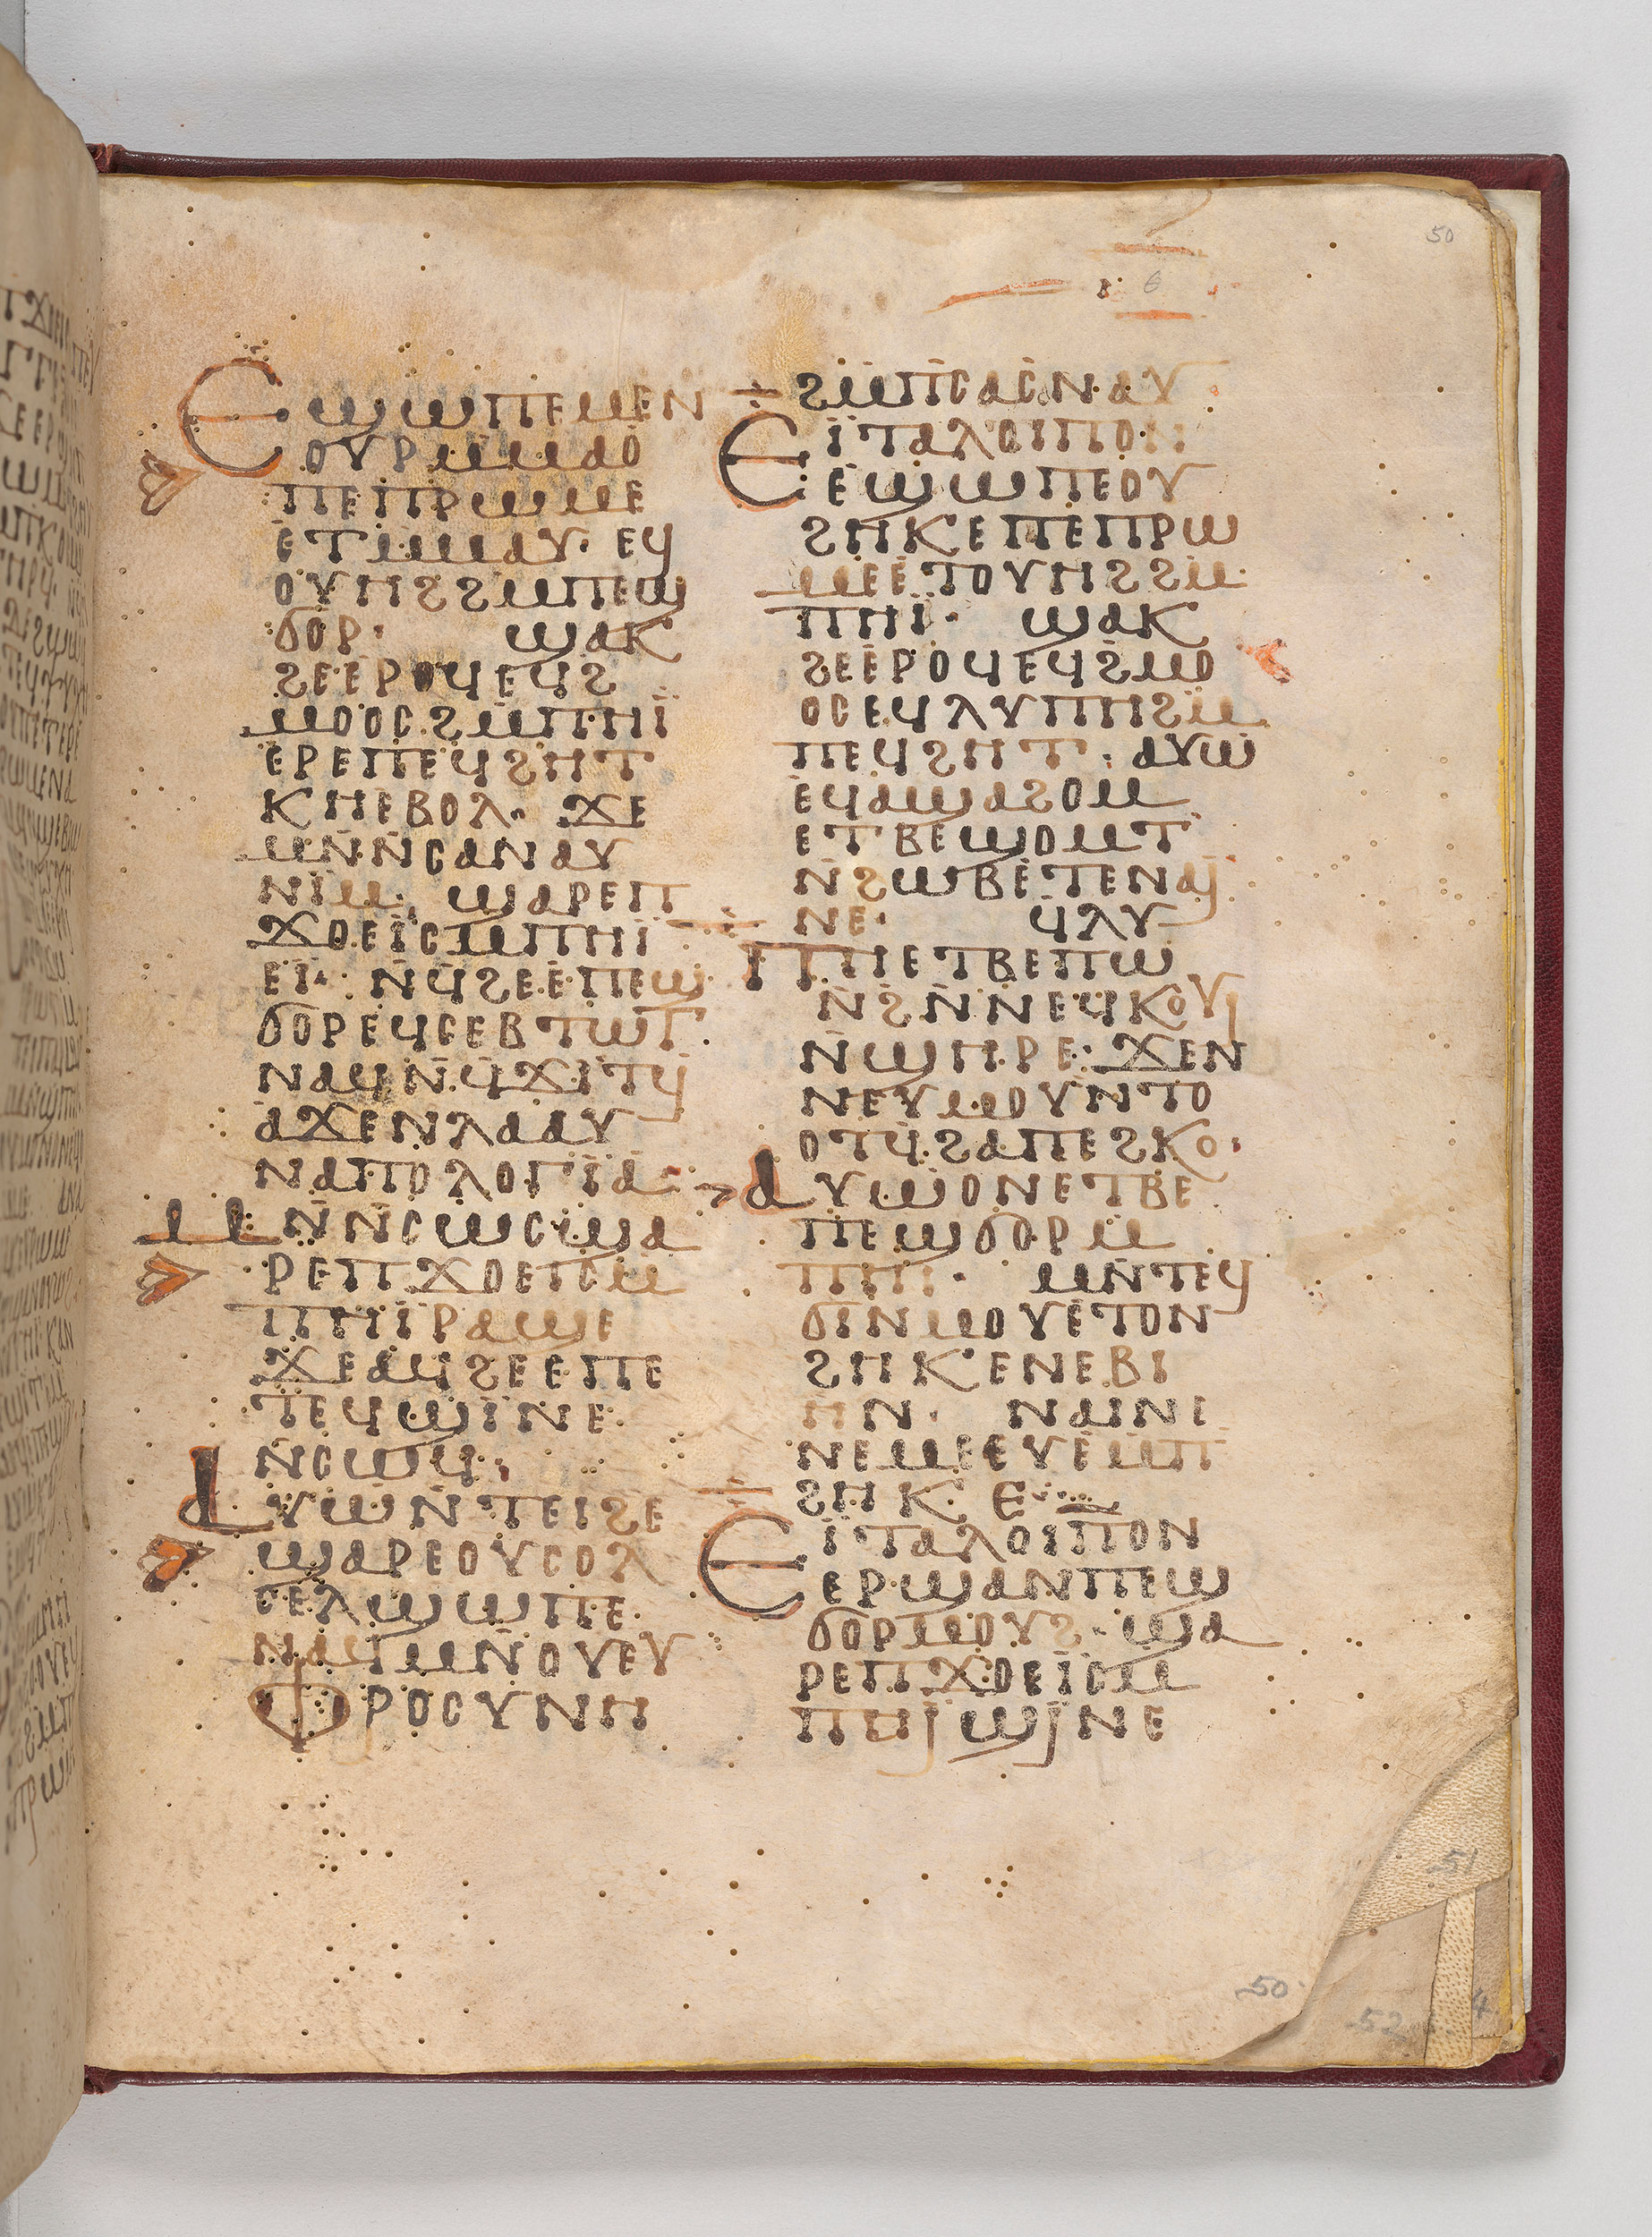 50
ⲉ
6
Ⲉϣⲱⲡⲉ ⲙⲉⲛ
ⲟⲩⲣⲙ̄ⲙⲁⲟ
ⲡⲉ ⲡⲣⲱⲙⲉ
ⲉⲧⲙ̄ⲙⲁⲩ· ⲉϥ
ⲟⲩⲏϩ ϩⲙ̄ ⲡⲉϣ
ϭⲟⲣ· ϣⲁⲕ
ϩⲉ ⲉⲣⲟϥ ⲉϥϩ
ⲙⲟⲟⲥ ϩⲙ̄ ⲡⲏⲓ̈
ⲉⲣⲉ ⲡⲉϥϩⲏⲧ
ⲕⲏ ⲉⲃⲟⲗ· ϫⲉ
ⲙⲛ̄ⲛ̄ⲥⲁ ⲛⲁⲩ
ⲛⲓⲙ· ϣⲁⲣⲉ ⲡ
ϫⲟⲉⲓⲥ ⲙ̄ⲡⲏⲓ̈
ⲉⲓ· ⲛ̄ϥϩⲉ ⲉⲡⲉϣ
ϭⲟⲣ ⲉϥⲥⲉⲃⲧⲱⲧ
ⲛⲁϥ ⲛ̄ϥϫⲓⲧϥ
ⲁϫⲉⲛ ⲗⲁⲁⲩ
ⲛⲁⲡⲟⲗⲟⲅⲓⲁ
Ⲙⲛ̄ⲛ̄ⲥⲱⲥ ϣⲁ
ⲣⲉ ⲡϫⲟⲉⲓⲥ ⲙ
ⲡⲏⲓ ⲣⲁϣⲉ
ϫⲉ ⲁϥϩⲉ ⲉⲡⲉ
ⲧⲉϥϣⲓⲛⲉ
ⲛ̄ⲥⲱϥ·
Ⲁⲩⲱ ⲛ̄ⲧⲉⲓϩⲉ
ϣⲁⲣⲉ ⲟⲩⲥⲟⲗ
ⲥⲉⲗ ϣⲱⲡⲉ
ⲛⲁϥ ⲙⲛ̄ ⲟⲩⲉⲩ
ⲫⲣⲟⲥⲩⲛⲏ
ϩⲙ̄ ⲡⲥⲁ ⲥⲛⲁⲩ
Ⲉⲓⲧⲁ ⲗⲟⲓⲡⲟⲛ
ⲉϣⲱⲡⲉ ⲟⲩ
ϩⲏⲕⲉ ⲡⲉ ⲡⲣⲱ
ⲙⲉ ⲉⲧⲟⲩⲏϩ ϩⲙ
ⲡⲏⲓ̈· ϣⲁⲕ
ϩⲉ ⲉⲣⲟϥ ⲉϥϩⲙⲟ
ⲟⲥ ⲉϥⲗⲩⲡⲏ ϩⲙ
ⲡⲉϥϩⲏⲧ· ⲁⲩⲱ
ⲉϥⲁϣⲁϩⲟⲙ
ⲉⲧⲃⲉ ϣⲟⲙⲧ
ⲛ̄ϩⲱⲃ ⲉⲧⲉ ⲛⲁⲓ
ⲛⲉ· ϥⲗⲩ
ⲡⲏ ⲉⲧⲃⲉ ⲡⲱ
ⲛϩ ⲛ̄ⲛⲉϥⲕⲟⲩⲓ
ⲛ̄ϣⲏⲣⲉ· ϫⲉ ⲛ
ⲛⲉⲩⲙⲟⲩ ⲛⲧⲟ
ⲟⲧϥ ϩⲁ ⲡⲉϩⲕⲟ·
Ⲁⲩⲱ ⲟⲛ ⲉⲧⲃⲉ
ⲡⲉϣϭⲟⲣ ⲙ
ⲡⲏⲓ· ⲙⲛ̄ ⲧⲉϥ
ϭⲓⲛⲙⲟⲩ ⲉⲧⲟⲛ
ϩⲏⲕⲉ ⲛⲉⲃⲓ
ⲏⲛ· ⲛⲁⲓ ⲛⲉ
ⲛⲉⲙⲉⲉⲩⲉ ⲙⲡ
ϩⲏⲕⲉ
Ⲉⲓⲧⲁ ⲗⲟⲓⲡⲟⲛ
ⲉⲣϣⲁⲛ ⲡⲉϣ
ϭⲟⲣ ⲙⲟⲩϩ· ϣⲁ
ⲣⲉ ⲡϫⲟⲉⲓⲥ ⲙ
ⲡⲏⲓ ϣⲓⲛⲉ
51
50
52
4